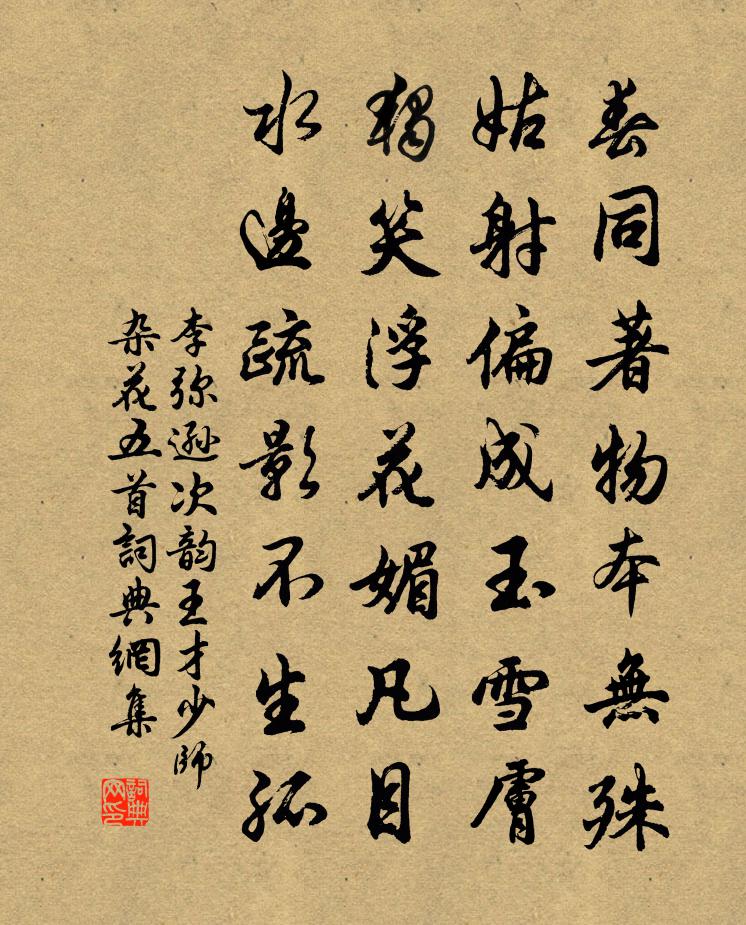 春同著物本無殊
姑射偏成玉雪膚
獨笑浮花媚凡目
水邊疏影不生孤
李弥遜次韵王才少師
杂花五首詞典網集
詞典网印